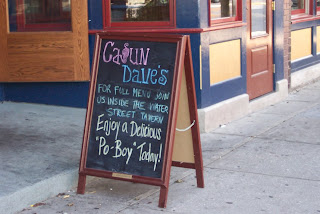 Cajun
Dave's
FOR FULL MENU JOIN
US INSIDE THE WATER
STREET TAVERN
Enjoy a Delicious
"Po-Boy" Today!